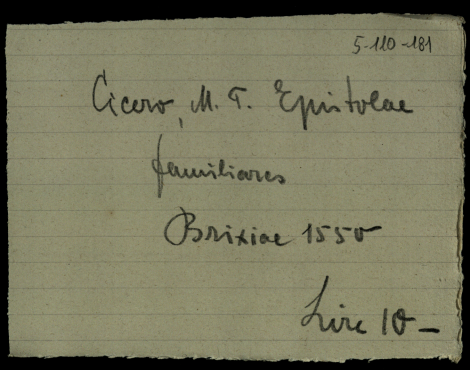 5-110-181
Cicero, M. T. Epistolae
familiares
Brixiae 1550
Lire 10 -